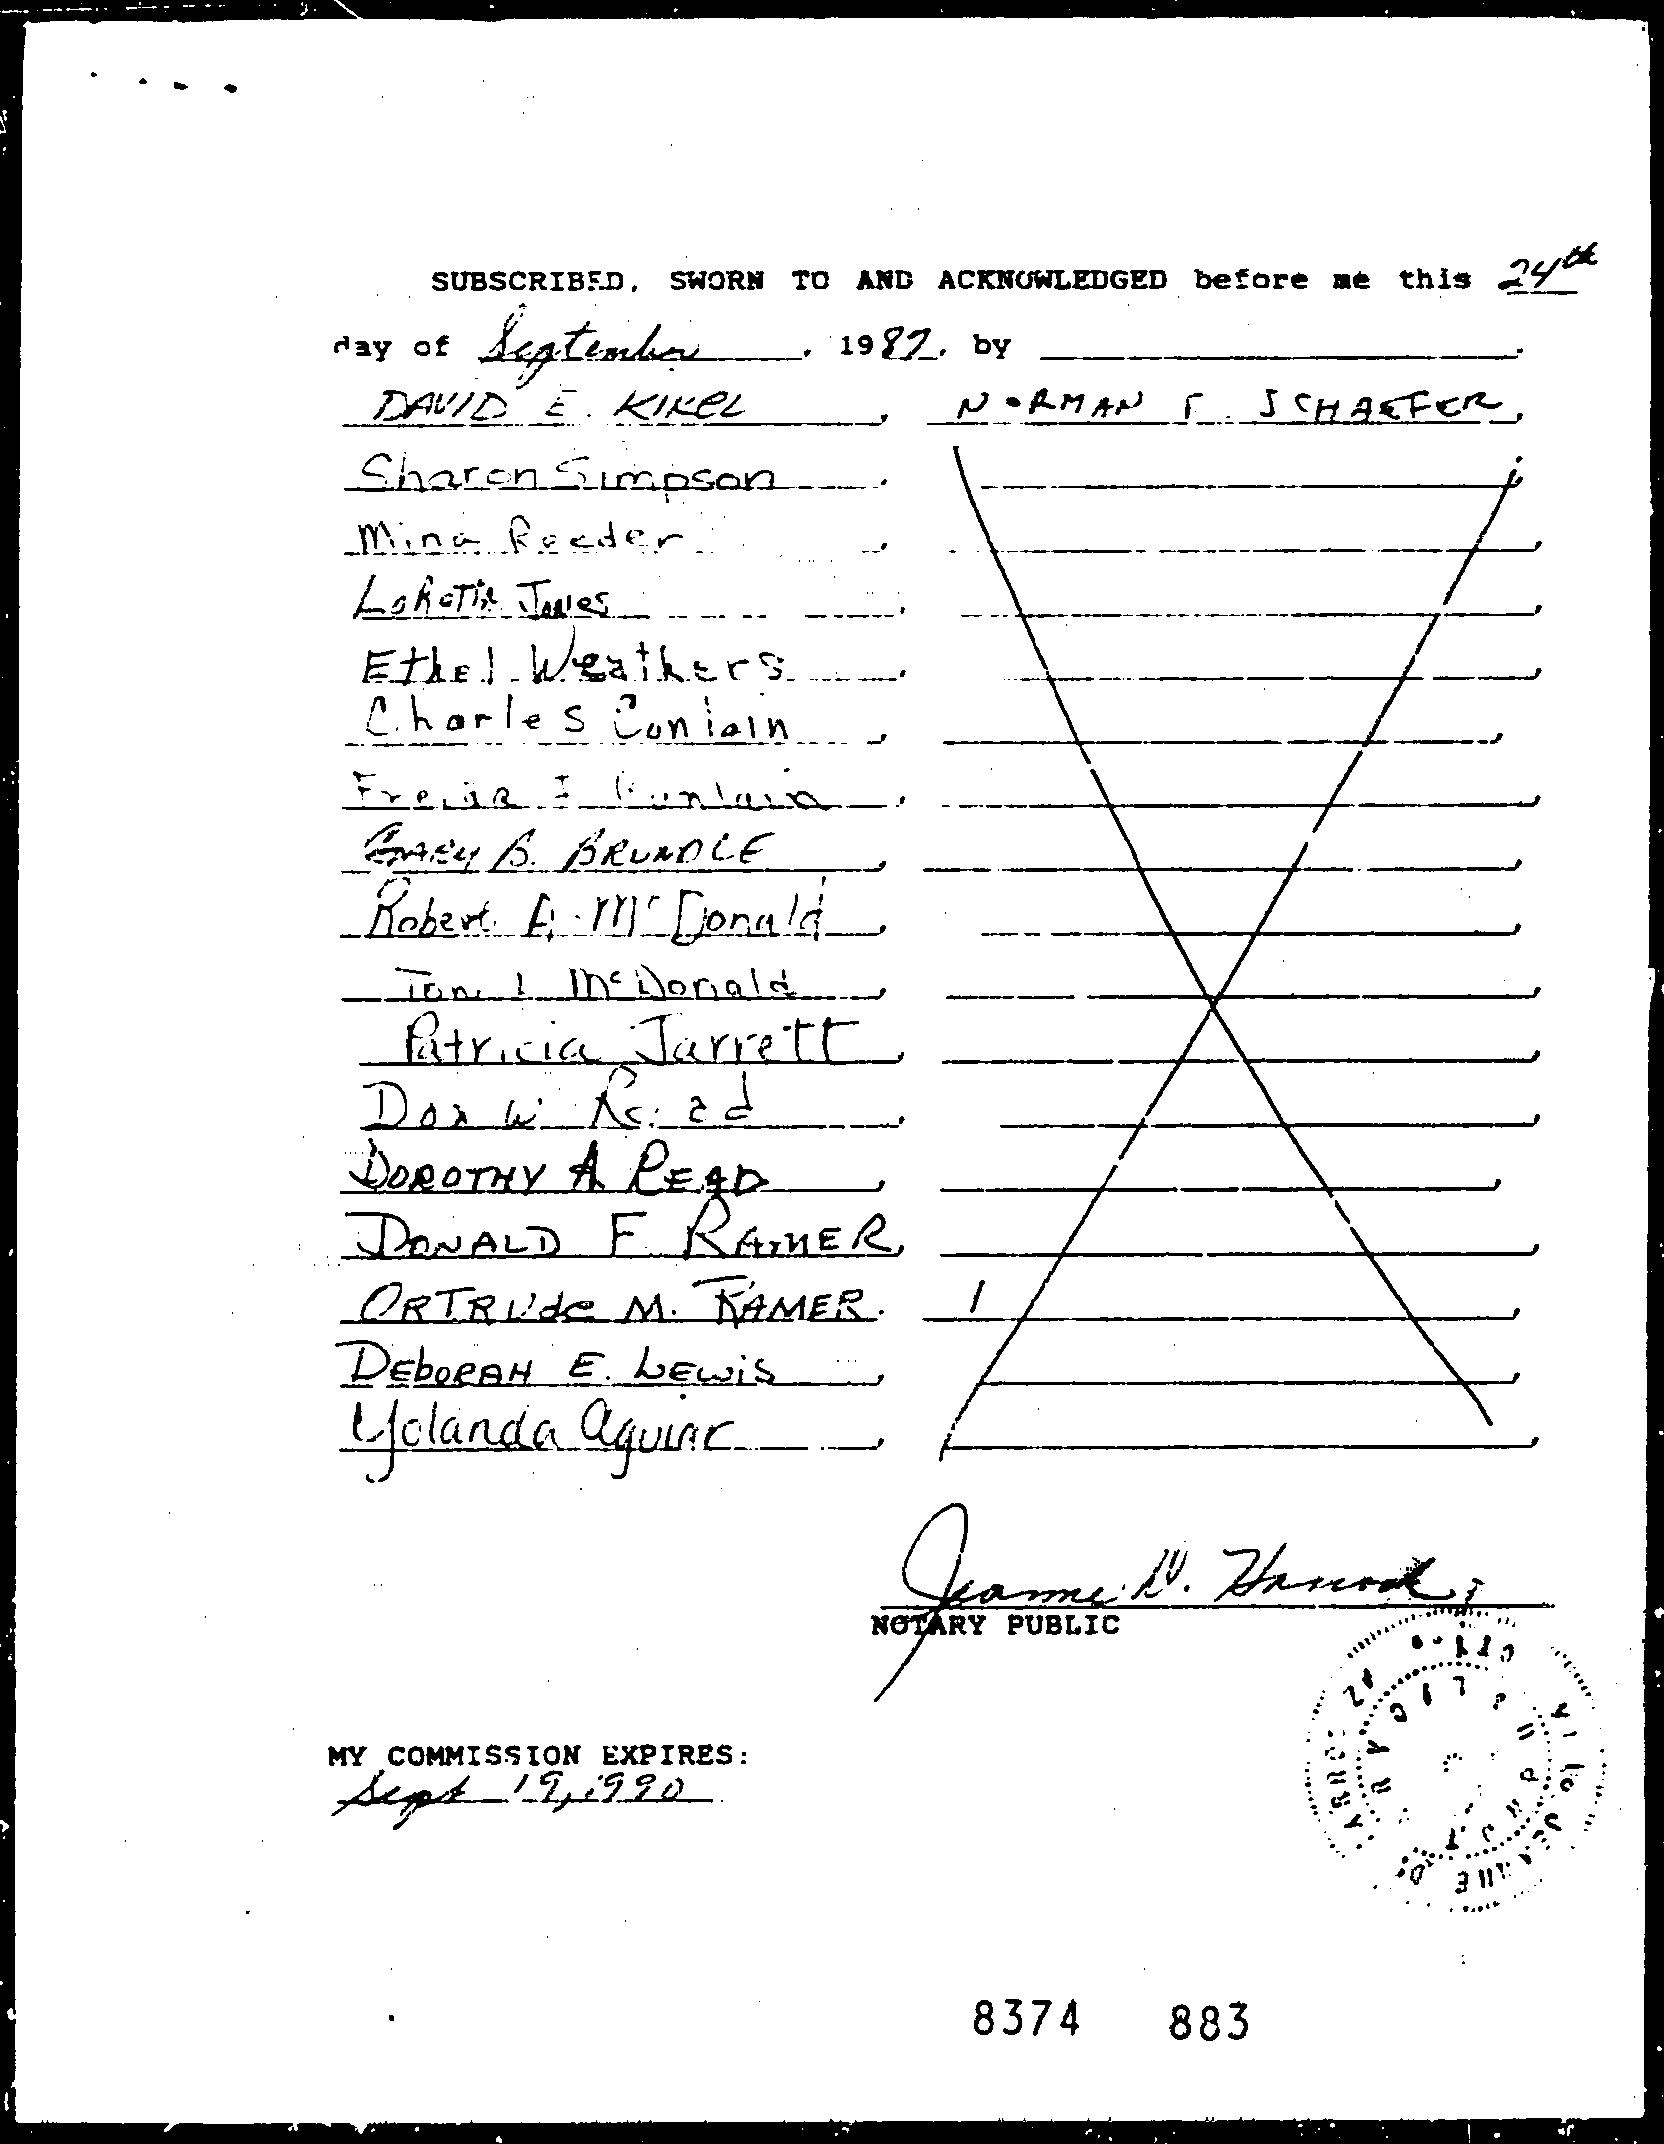 SUBSCRIBED, SWORN TO AND ACKNOWLEDGED before me this 24th
day of September, 1987, by
DAVID E. KIKEL, NORMAN F. SCHAEFER,
Sharon Simpson,
Mina Reeder,
Jones,
Ethel Weathers,
Charles Conlain,
I
GARY B. BRUNDLE,
Robert A. McDonald,
McDonald,
Patricia Jarrett,
Don W.
DOROTHY A READ,
DONALD F. RAMER,
ORTRUde M. RAMER.
DEBORAH E. LEWIS,
Yolanda Aguiar,
Jeanne
NOTARY PUBLIC
MY COMMISSION EXPIRES:
Sept 19, 1990
8374 883